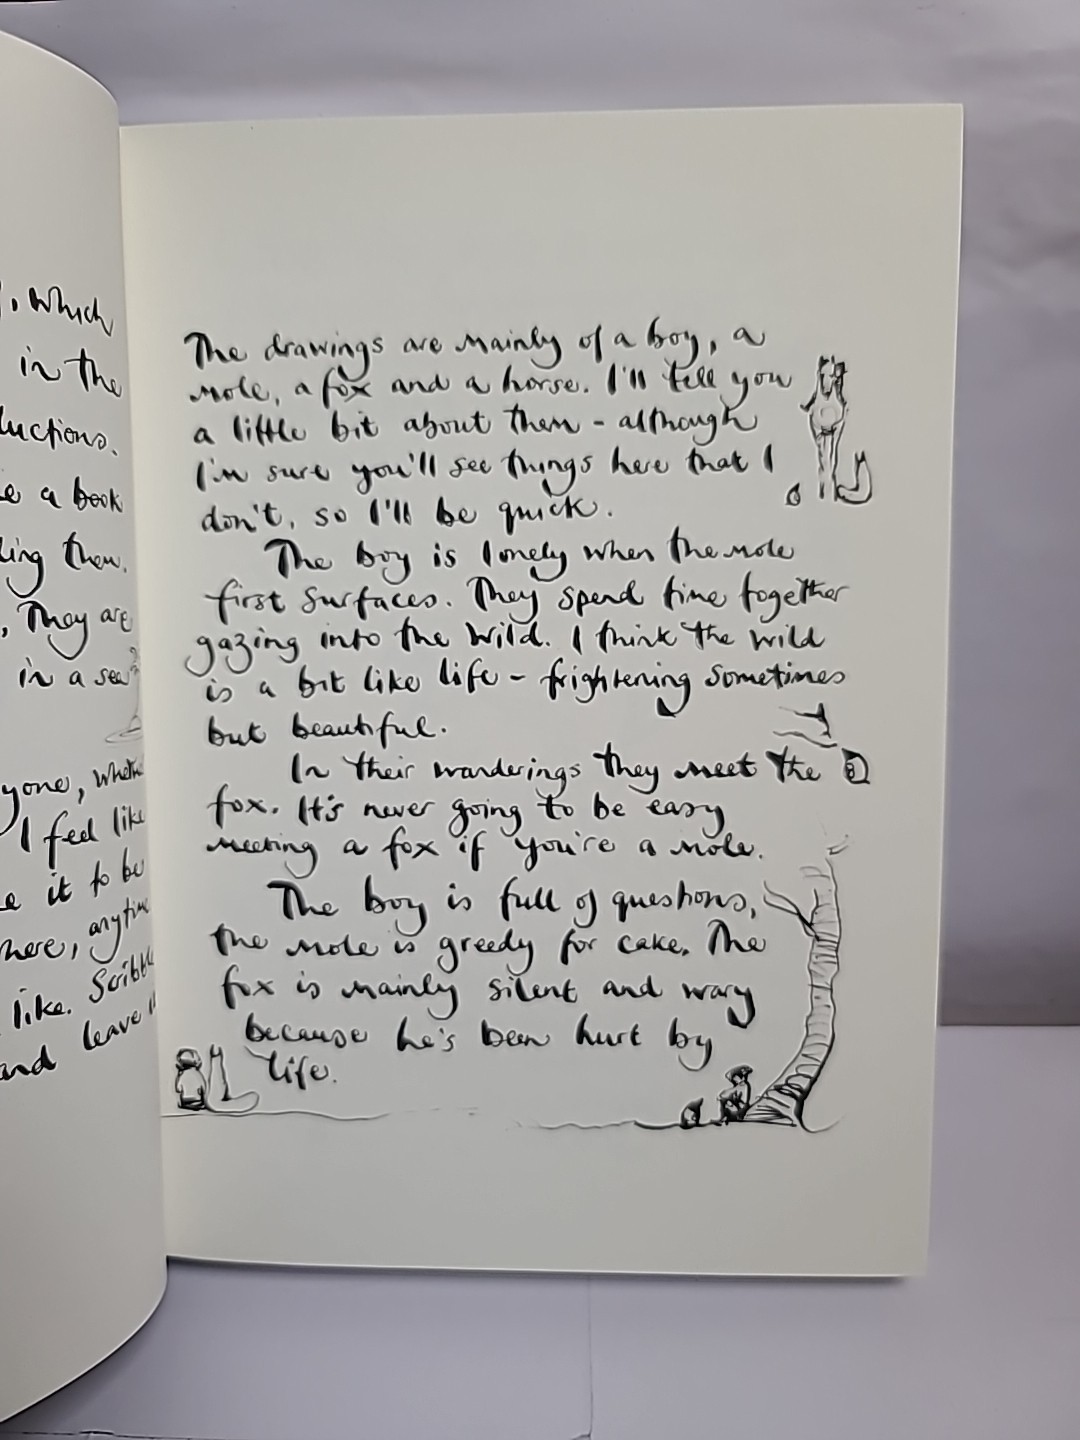 , which
in the
ductions.
e a book
ling them.
, They are
in a sea
yone, whethe
I feel like
e it to be
here, anytime
like. Scribble
and leave it
The drawings are mainly of a boy, a
mole, a fox and a horse. I'll tell you
a little bit about them - although
I'm sure you'll see things here that I
don't, so I'll be quick.
The boy is lonely when the mole
first surfaces. They spend time together
gazing into the wild. I think the wild
is a bit like life - frightening sometimes
but beautiful.
In their wanderings they meet the
fox. It's never going to be easy
meeting a fox if you're a mole.
The boy is full of questions,
the mole is greedy for cake. The
fox is mainly silent and wary
because he's been hurt by
life.